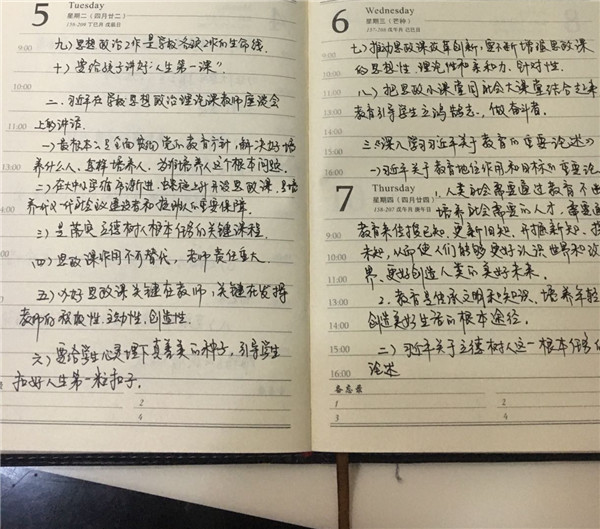 5
Tuesday
星期二（四月廿二）
156-209 丁巳月 戊辰日
9:00
九）思想政治工作是学校各项工作的生命线.
10:00
十）要给孩子讲好“人生第一课”.
二、习近平在学校思想政治理论课教师座谈会
11:00
上的讲话.
一）最根本的是全面贯彻党的教育方针，解决好培
13:00
养什么人、怎样培养人、为谁培养人这个根本问题.
二）在大中小学循序渐进、螺旋上升开设思政课，是培
14:00
养一代又一代社会主义建设者和接班人的重要保障.
三）是落实立德树人根本任务的关键课程.
四）思政课作用不可替代，老师责任重大.
五）办好思政课关键在教师，关键在发挥
教师的积极性、主动性、创造性.
15:00
六）要给学生心灵埋下真善美的种子，引导学生
16:00
扣好人生第一粒扣子.
1
2
3
4
6
Wednesday
星期三（芒种）
157-208 戊午月 己巳日
9:00
七）推动思政课改革创新，要不断增强思政课
10:00
的思想性、理论性和亲和力、针对性.
八）把思政小课堂同社会大课堂结合起来
11:00
教育引导学生立鸿鹄志，做奋斗者.
13:00
三《深入学习习近平关于教育的重要论述》
14:00
一）习近平关于教育地位作用和目标的重要论
7
Thursday
星期四（四月廿四）
158-207 戊午月 庚午日
1、人类社会需要通过教育不
培养社会需要的人才，需要通
9:00
教育来传授已知、更新旧知、开掘新知、探
10:00
未知，从而使人们能够更好认识世界和改
11:00
界、更好创造人类的美好未来.
13:00
2、教育是传承文明和知识、培养年轻
14:00
创造美好生活的根本途径.
15:00
二）习近平关于立德树人这一根本任务的
16:00
论述
备忘录
1
2
3
4